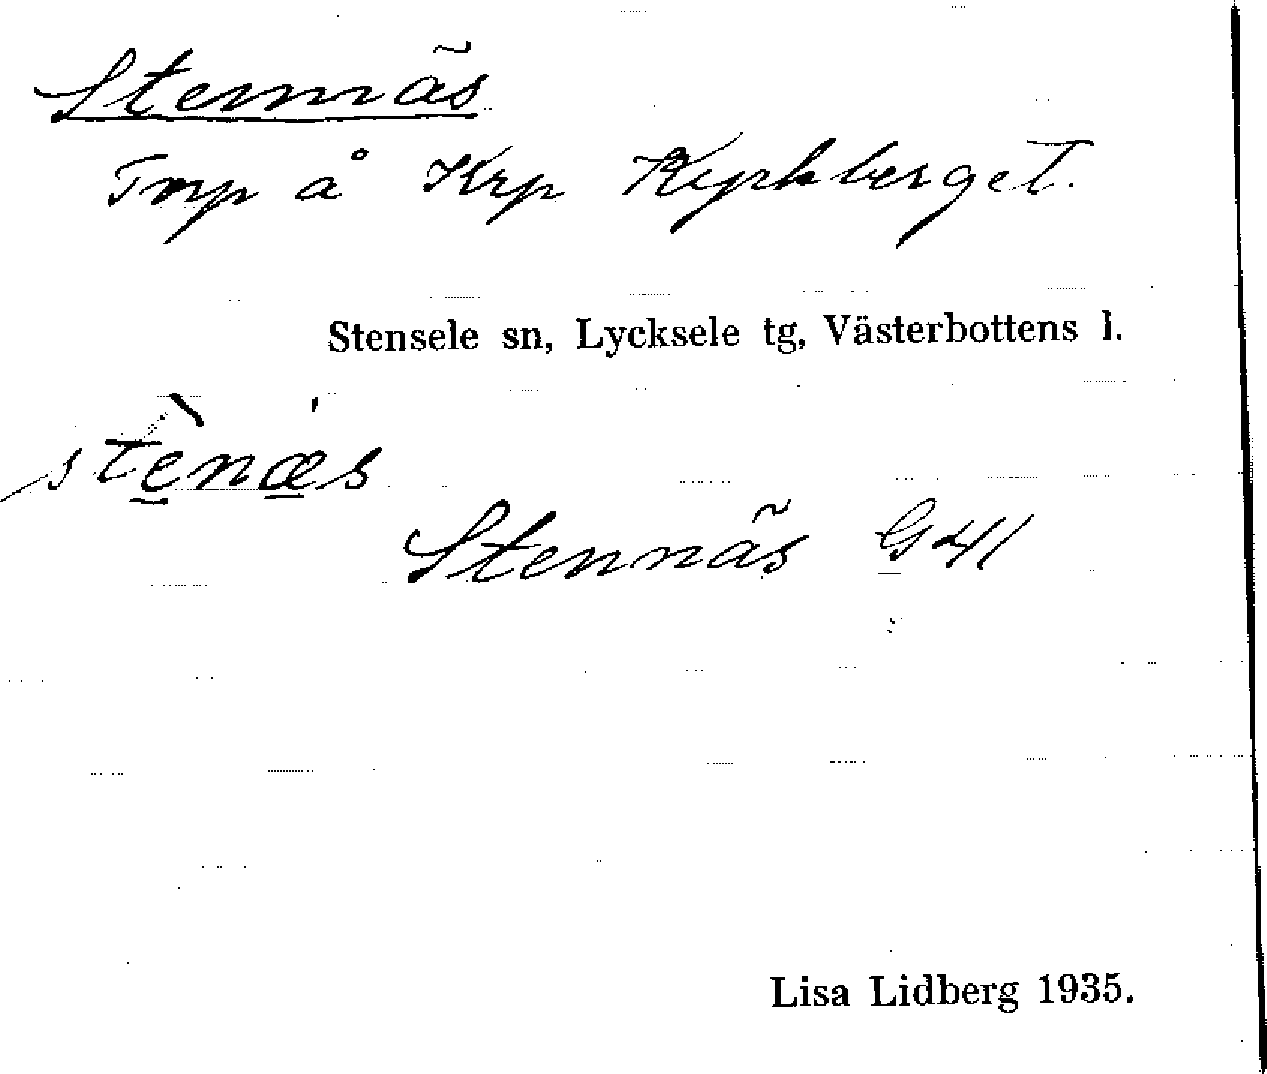 Stennäs
Tmp å Krp Kyrkberget.
Stensele sn, Lycksele tg, Västerbottens l.
stè̱næ̱s
Stennäs G41
Lisa Lidberg 1935.